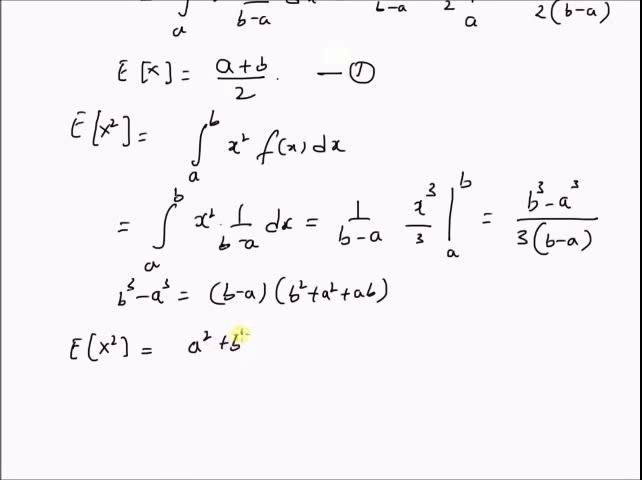 ∫ₐ b-a b-a 2 a 2(b-a)
E[x] = (a+b)/2 . — ①
E[x²] = ∫ₐᵇ x² f(x) dx
= ∫ₐᵇ x² · 1/(b-a) dx = 1/(b-a) x³/3 |ₐᵇ = (b³-a³)/(3(b-a))
b³-a³ = (b-a)(b²+a²+ab)
E[x²] = a²+b